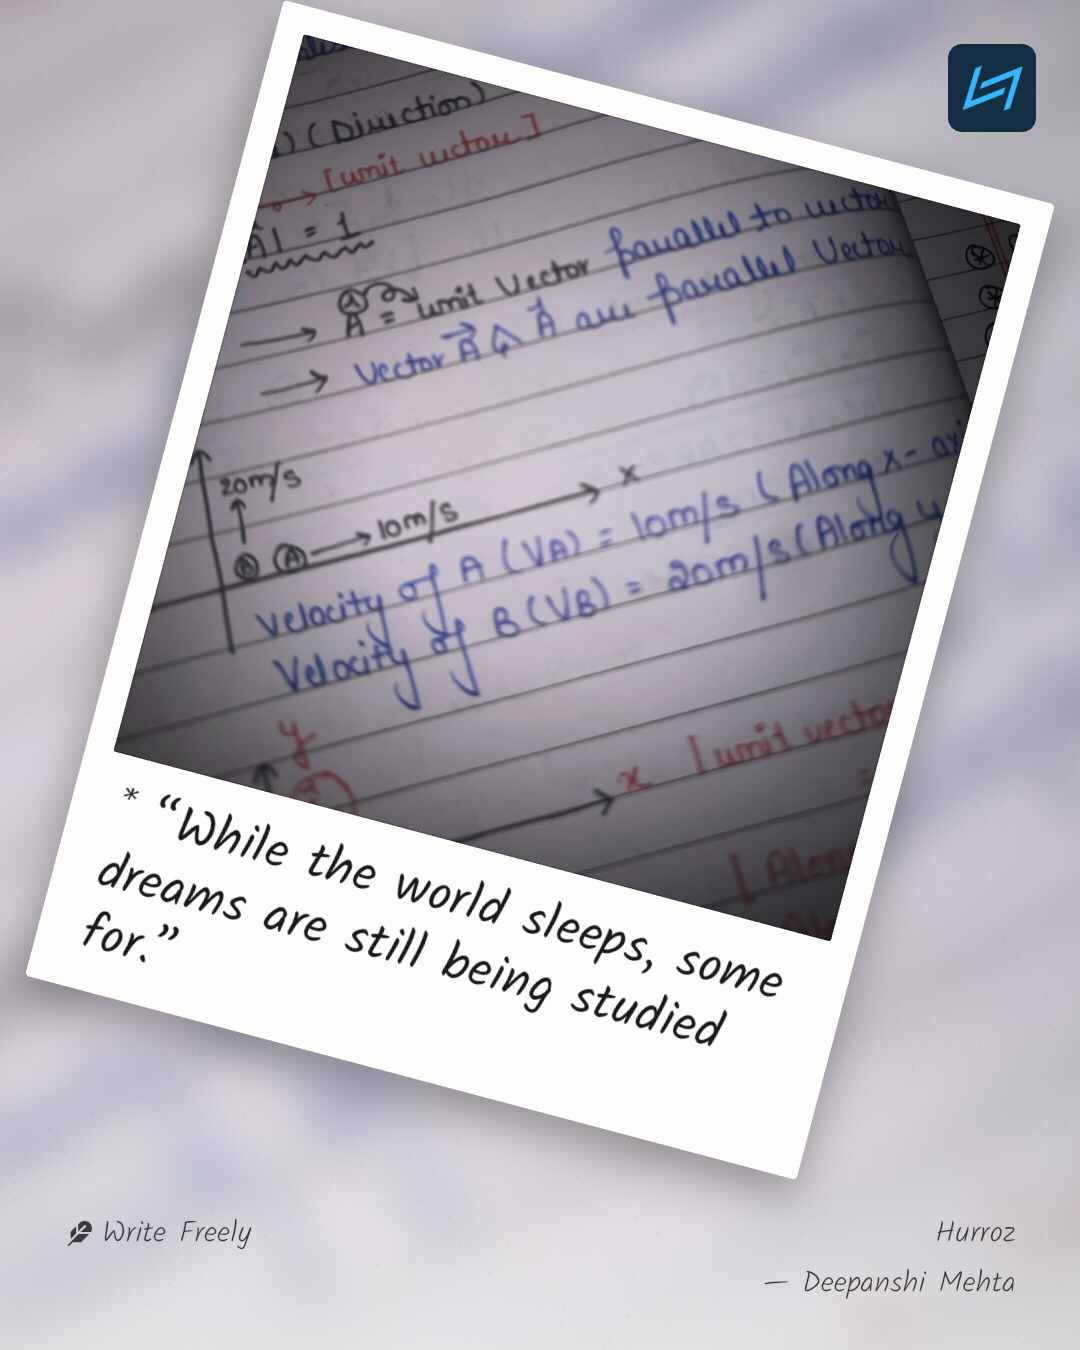 ) (Direction)
→ [unit vector]
A| = 1
→ Â = unit Vector parallel to vector
→ Vector A⃗ & Â are parallel Vector
20m/s
B A → 10m/s x
Velocity of A (VA) = 10m/s (Along x-axi
Velocity of B (VB) = 20m/s (Along y
y
x [unit vector
=
[Along
* “While the world sleeps, some
dreams are still being studied
for.”
Write Freely
Hurroz
— Deepanshi Mehta